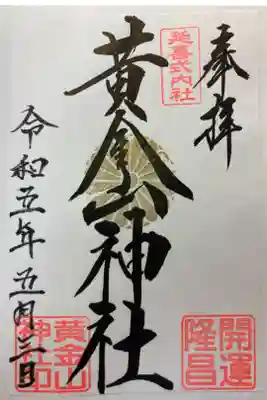 奉拝
延喜式内社
黄金山神社
開運
隆昌
黄金山
神社印
令和五年五月三日